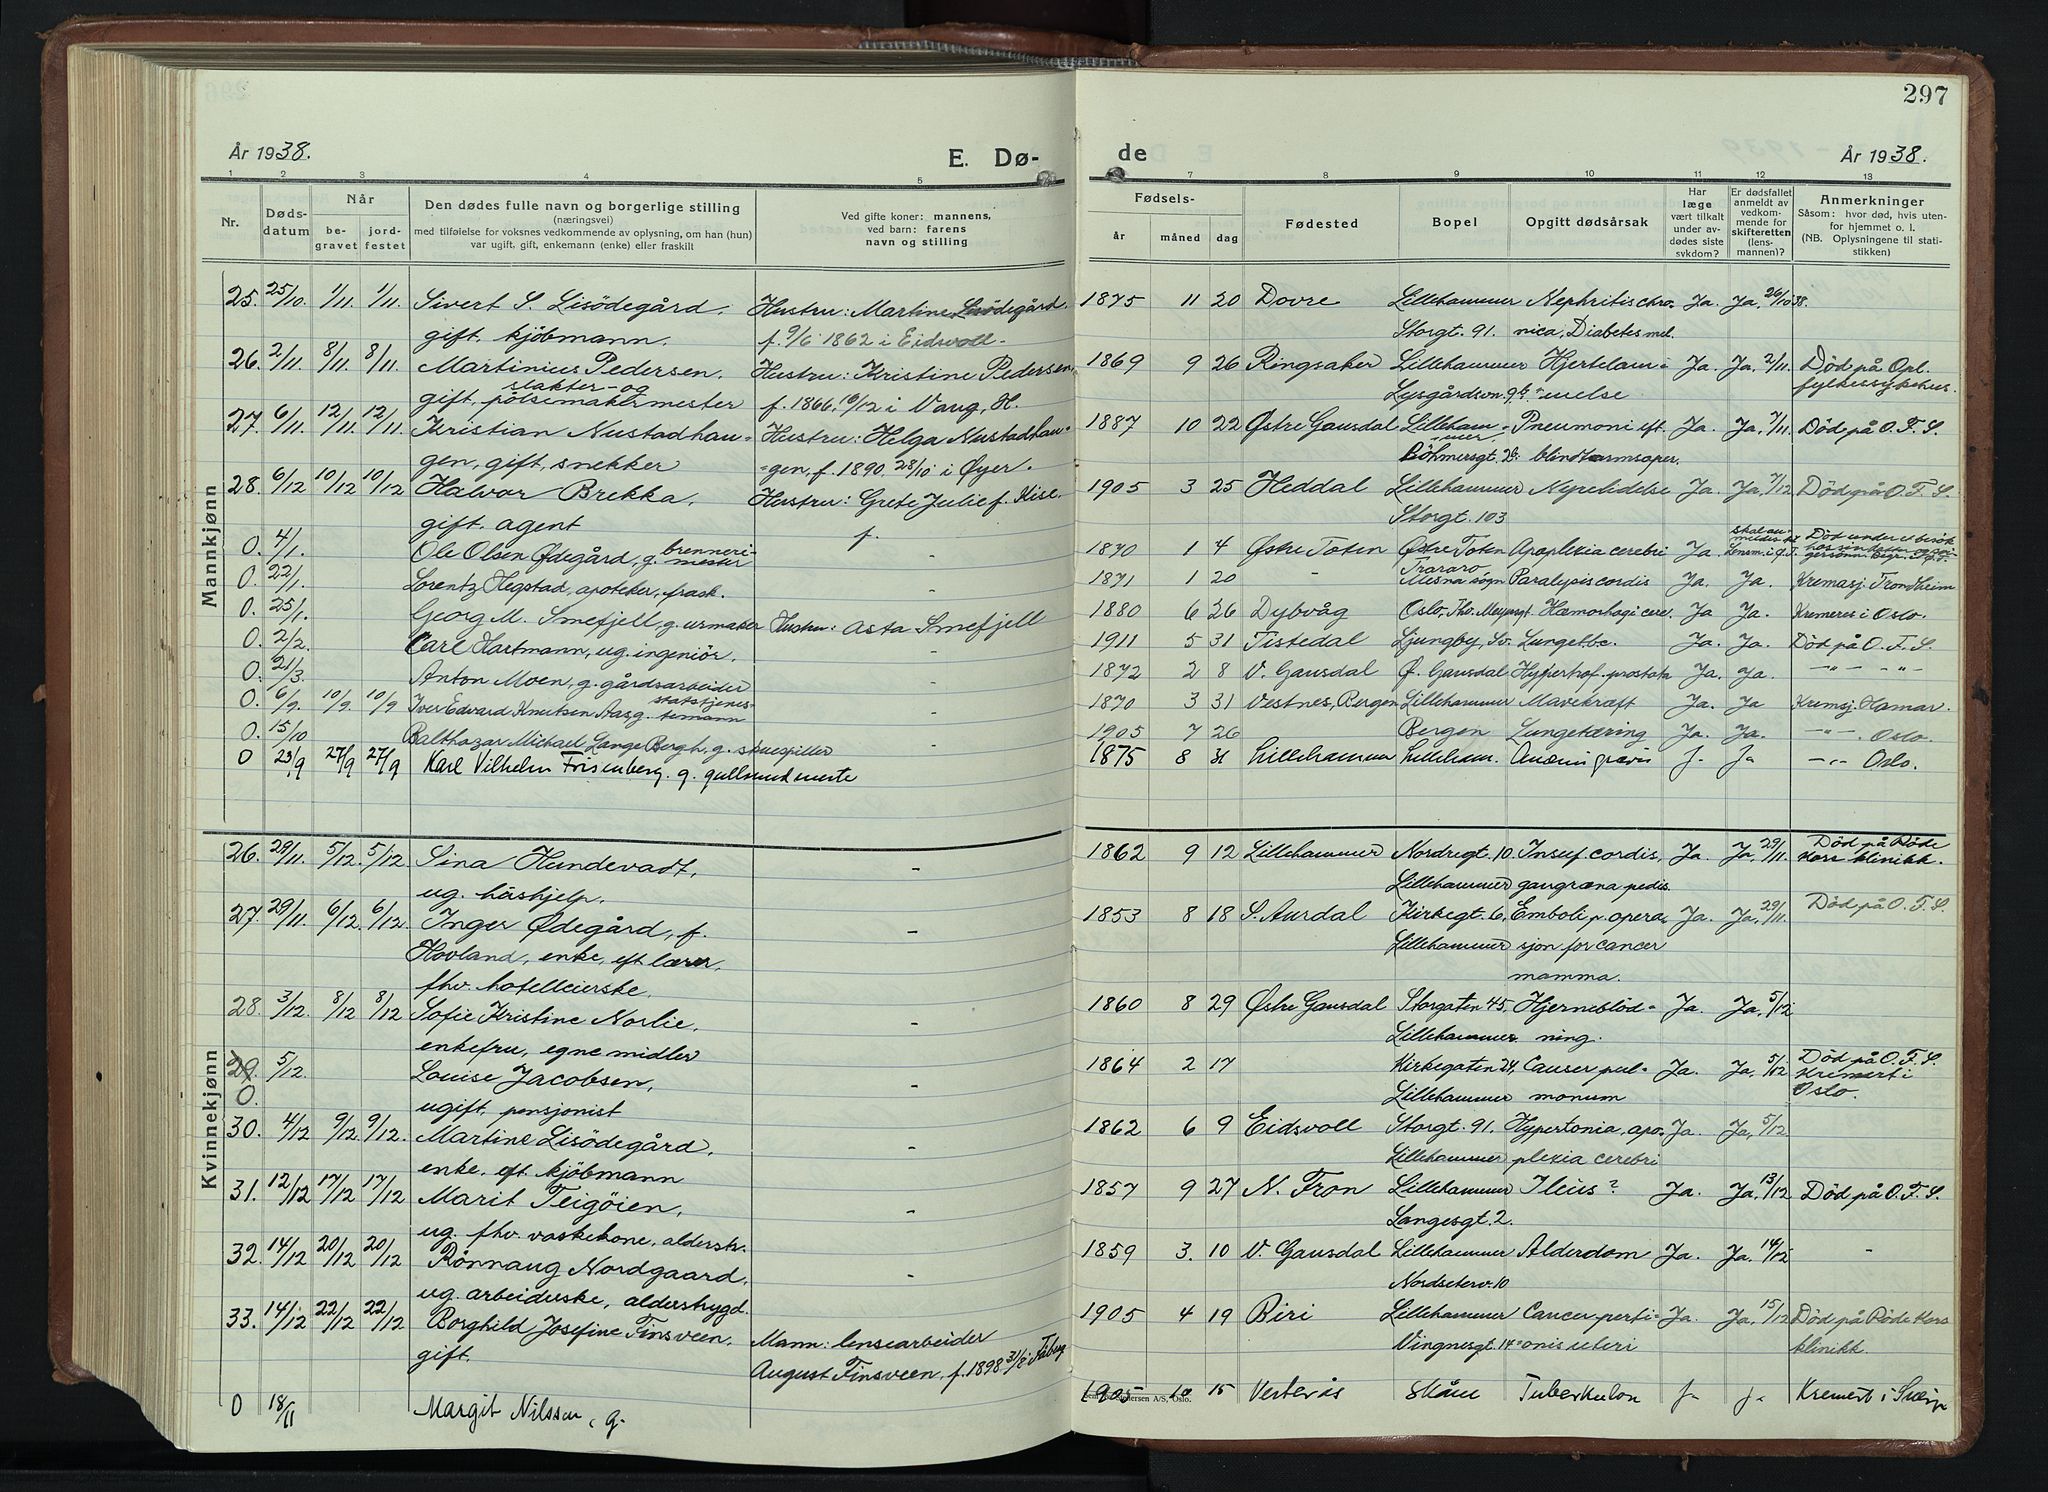 297
År 1938.
E. Dø-
de
År 1938.
1 2 3 4 5 7 8 9 10 11 12 13
Nr.
Dødsdatum
Når
begravet
jordfestet
Den dødes fulle navn og borgerlige stilling
(næringsvei)
med tilføielse for voksnes vedkommende av oplysning, om han (hun)
var ugift, gift, enkemann (enke) eller fraskilt
Ved gifte koner: mannens,
ved barn: farens
navn og stilling
Fødsels-
år måned dag
Fødested
Bopel
Opgitt dødsårsak
Har
læge
vært tilkalt
under av-
dødes siste
sykdom?
Er dødsfallet
anmeldt av
vedkom-
mende for
skifteretten
(lens-
mannen)?
Anmerkninger
Såsom: hvor død, hvis uten-
for hjemmet o. l.
(NB. Oplysningene til stati-
stikken)
Mannkjønn
25. 25/10. 1/11. 1/11. Sivert S. Lisödegård. Hustru: Martine Lisödegård. 1875 11 20 Dovre Lillehammer Nephritis chro- Ja. Ja, 26/10 38.
gift. kjöbmann. f. 9/6 1862 i Eidsvoll. Storgt. 91. nica, Diabetes mel.
26. 2/11. 8/11. 8/11. Martinius Pedersen. Hustru: Kristine Pedersen, 1869 9 26 Ringsaker Lillehammer Hjertelam- Ja. Ja, 2/11. Død på Opl.
slakter- og
gift, pölsemakermester f. 1866, 16/12 i Vang, H. Lysgårdsvn. 9b -melse fylkessykehus.
27. 6/11. 12/11. 12/11. Kristian Nustadhau- Hustru: Helga Nustadhau- 1887 10 22 Østre Gausdal Lilleham- Pneumoni eft. Ja. Ja, 7/11. Död på O. F. S.
-mer.
gen, gift, snekker -gen, f. 1890 28/10 i Øyer. Böhmersgt. blindtarmsoper.
28. 6/12 10/12 10/12 Halvor Brekka. Hustru: Grete Julie f. Kise. 1905 3 25 Heddal Lillehammer Nyrelidelse Ja. Ja, 7/12 Död på O. F. S.
gift. agent f. Storgt. 103
0. 4/1. Ole Olsen Ødegård, g. brenneri-mester - 1870 1 4 Østre Toten Østre Toten Apoplexia cerebri Ja. Lensm. i Ø. T. Död under et besök
0. 22/1. Lorentz Hegstad, apoteker, frask. - 1871 1 20 - Mesna sogn Paralysis cordis Ja. Ja. Kremasj. Trondheim
0. 25/1. Georg M. Smefjell, g. urmaker Hustru: Asta Smefjell 1880 6 26 Dybvåg Oslo, Th. Meyersgt. Hæmorhagi cere. Ja Ja. Kremeres i Oslo.
0. 2/2. Carl Hartmann, ug. ingeniör. - 1911 5 31 Tistedal Ljungby, Sv. Lungetbc. Ja. Ja. Död på O. F. S.
0. 21/3. Anton Moen, g. gårdsarbeider - 1872 2 8 V. Gausdal Ø. Gausdal Hypertrof. prostata Ja. Ja. -"- -"-
0. 6/9. 10/9. 10/9 Iver Edvard Knutsen Aas g. statstjenes-temann - 1870 3 31 Vestnes, Bergen Lillehammer Mavekræft Ja Ja Kremsj. Hamar.
0. 15/10 Balthazar Michael Lange Bergh, g. skuespiller 1905 7 26 Bergen Lungetæring Ja. Ja. -"-. Oslo.
0 23/9 27/9 27/9 Karl Vilhelm Frisenberg. g. gullsmedmeste 1875 8 31 Lillehammer Lilleham. Anæmi gravis J. Ja -"- Oslo.
Kvinnekjønn
26. 29/11. 5/12. 5/12 Sina Hundevadt, - 1862 9 12 Lillehammer Nordregt. 10. Insuf. cordis, Ja. Ja, 29/11. Död på Röde
ug. håshjelp. Lillehammer gangræna pedis. Kors klinikk.
27. 29/11. 6/12. 6/12. Inger Ødegård, f. - 1853 8 18 S. Aurdal Kirkegt. 6, Emboli p. opera- Ja. Ja, 29/11. Död på O. F. S.
Hovland, enke, eft lærer, Lillehammer sjon for cancer
fhv. hotelleierske. mamma.
28. 3/12. 8/12 8/12 Sofie Kristine Norlie, - 1860 8 29 Østre Gausdal Storgaten 45, Hjerneblöd- Ja. Ja, 5/12
enkefru, egne midler Lillehammer ning.
29. 5/12. Louise Jacobsen, - 1864 2 17 Kirkegaten 24, Cancer pul- Ja. Ja, 5/12 Död på O. F. S.
0. ugift, pensjonist Lillehammer monum Kremert i Oslo.
30. 4/12 9/12 9/12. Martine Lisödegård, - 1862 6 9 Eidsvoll Storgt. 91. Hypertonia, apo- Ja. Ja, 5/12
enke. eft. kjöbmann Lillehammer plexia cerebri
31. 12/12 17/12 17/12 Marit Teigöien, - 1857 9 27 N. Fron Lillehammer Ileus? Ja. Ja, 13/12 Död på O. F. S.
ug. fhv. vaskekone, alderstr. Langesgt. 2.
32. 14/12 20/12 20/12 Rönnaug Nordgaard, - 1859 3. 10 V. Gausdal Lillehammer Alderdom Ja. Ja. 14/12 -
ug. arbeiderske, alderstrygd. Nordseterv. 10
33. 14/12 22/12 22/12 Borghild Josefine Finsveen, Mann: lensearbeider 1905 4 19 Biri Lillehammer Cancer perti- Ja. Ja, 15/12 Död på Röde Kors
gift. August Finsveen, f. 1898 31/8 i Fåberg Vingnesgt. 14 -onis uteri klinikk.
0 18/11 Margit Nilssen, g. 1905 10 15 Vesterås Skåne Tuberkulon J. J. Kremert i Sverige